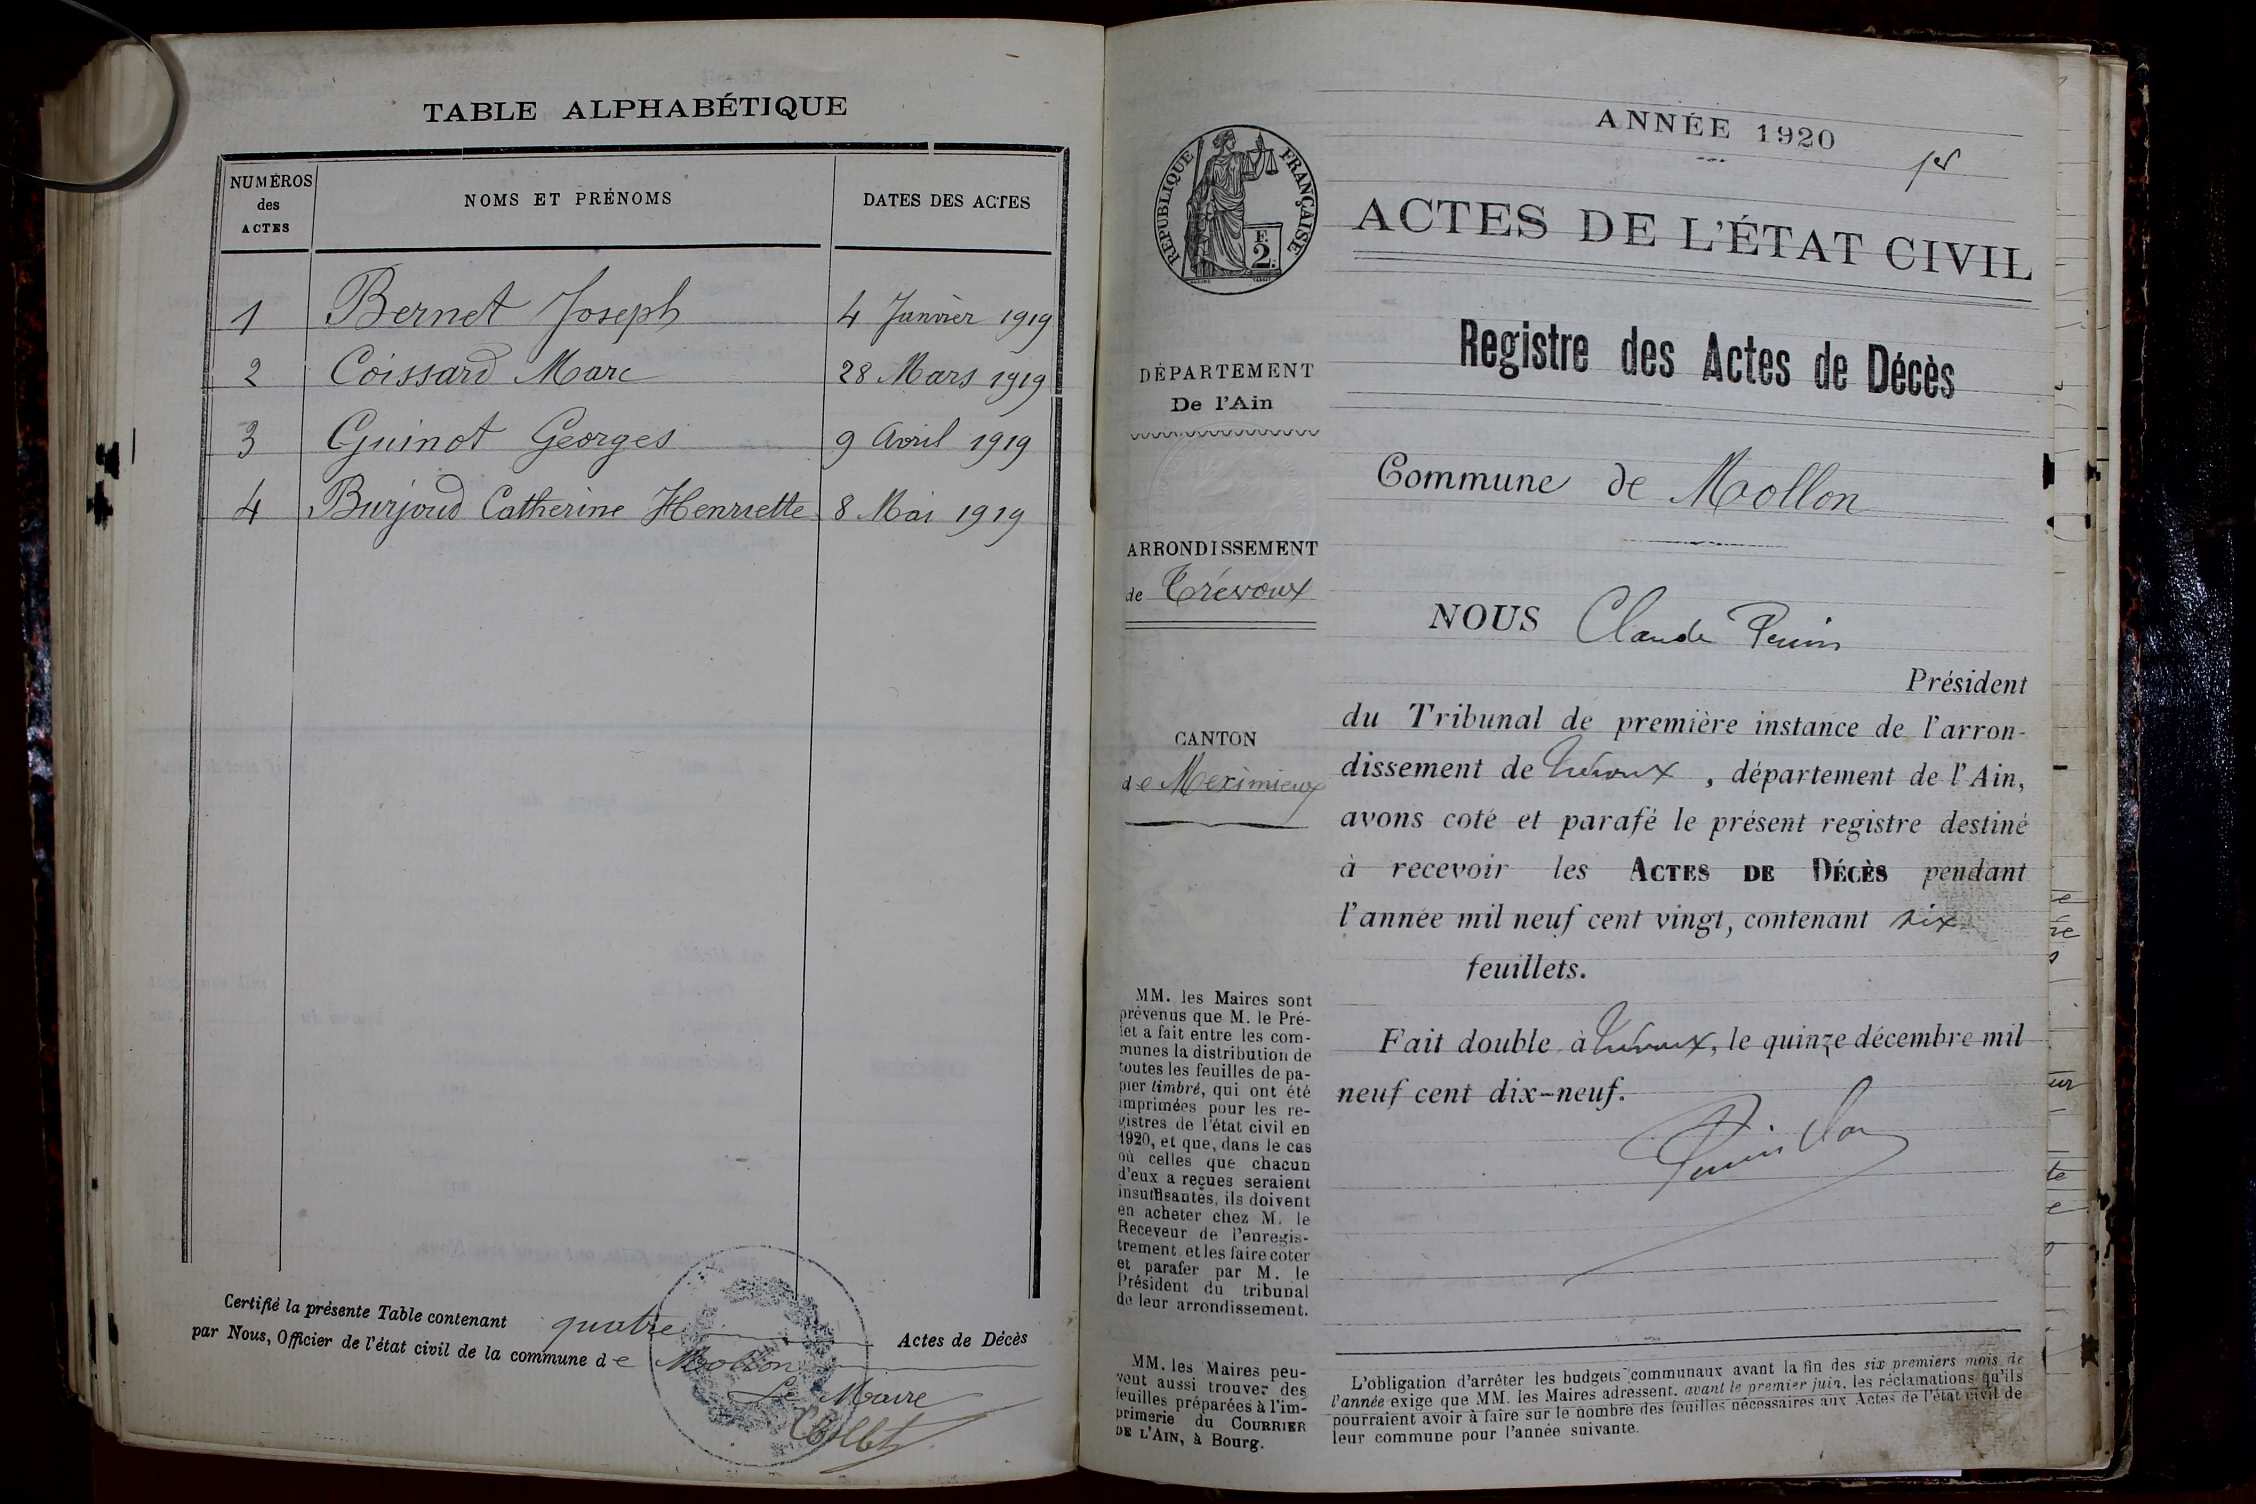 TABLE ALPHABÉTIQUE
NUMÉROS des ACTES
NOMS ET PRÉNOMS
DATES DES ACTES
1 Bernet Joseph 4 Janvier 1919
2 Coissard Marc 28 Mars 1919
3 Guinot Georges 9 Avril 1919
4 Burjoud Catherine Henriette 8 Mai 1919
Certifié la présente Table contenant quatre Actes de Décès
par Nous, Officier de l'état civil de la commune de Mollon
Le Maire
ANNÉE 1920
1er
RÉPUBLIQUE FRANÇAISE
F. 2.
ACTES DE L'ÉTAT CIVIL
Registre des Actes de Décès
DÉPARTEMENT
De l'Ain
Commune de Mollon
ARRONDISSEMENT
de Trévoux
CANTON
de Meximieux
NOUS Claude Perrin
Président
du Tribunal de première instance de l'arron-
dissement de Trévoux, département de l'Ain,
avons coté et parafé le présent registre destiné
à recevoir les ACTES DE DÉCÈS pendant
l'année mil neuf cent vingt, contenant six
feuillets.
Fait double à Trévoux, le quinze décembre mil
neuf cent dix-neuf.
MM. les Maires sont
prévenus que M. le Pré-
fet a fait entre les com-
munes la distribution de
toutes les feuilles de pa-
pier timbré, qui ont été
imprimées pour les re-
gistres de l'état civil en
1920, et que, dans le cas
où celles que chacun
d'eux a reçues seraient
insuffisantes, ils doivent
en acheter chez M. le
Receveur de l'enregis-
trement et les faire coter
et parafer par M. le
Président du tribunal
de leur arrondissement.
MM. les Maires peu-
vent aussi trouver des
feuilles préparées à l'im-
primerie du COURRIER
DE L'AIN, à Bourg.
L'obligation d'arrêter les budgets communaux avant la fin des six premiers mois de
l'année exige que MM. les Maires adressent, avant le premier juin, les réclamations qu'ils
pourraient avoir à faire sur le nombre des feuilles nécessaires aux Actes de l'état civil de
leur commune pour l'année suivante.